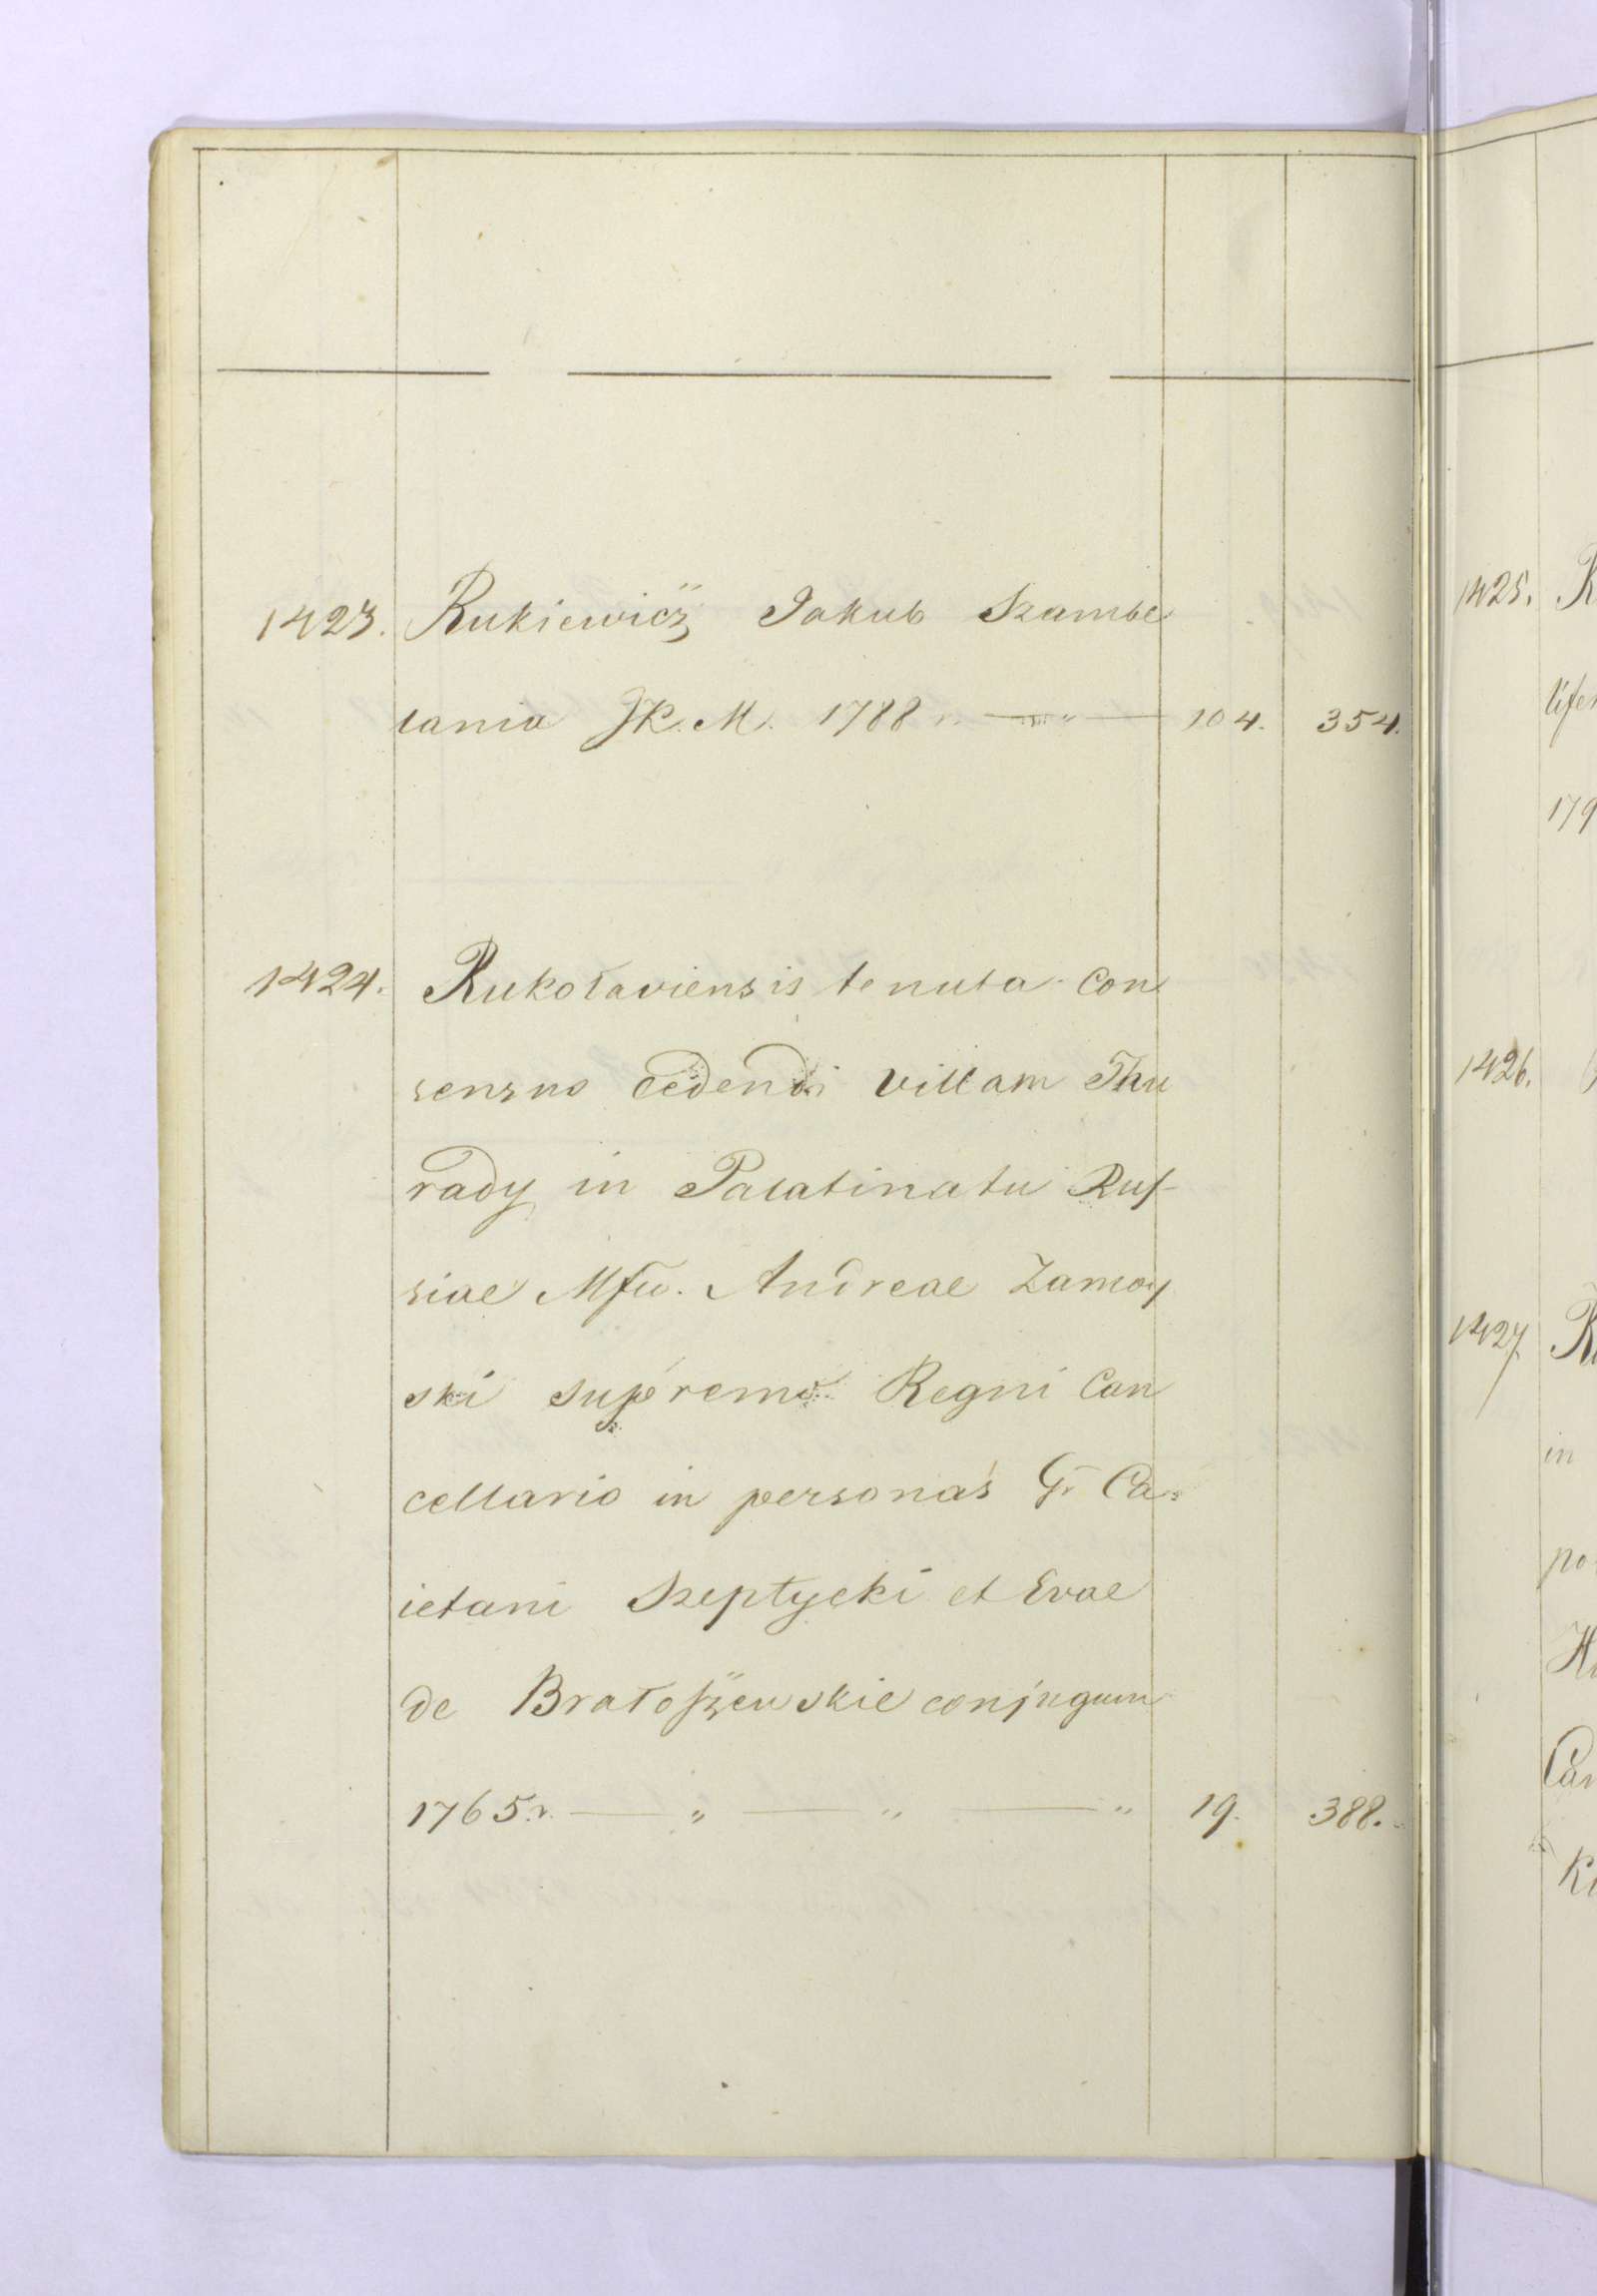 1423. Rukiewicz Jakub Szambe
lania JK. M. 1788 r. — " — 104. 354.
1424. Rukoławiensis tenuta con
sensus cedendi villam Thu
rady in Palatinatu Ruſ-
siae Mſio. Andreae Zamoy
ski supremo Regni Can
cellario in personas G. Ca-
ietani Szeptycki et Evae
de Bratoſzewskie conjugum
1765 r. — " — " — " 19. 388.
1425.
1426.
1427